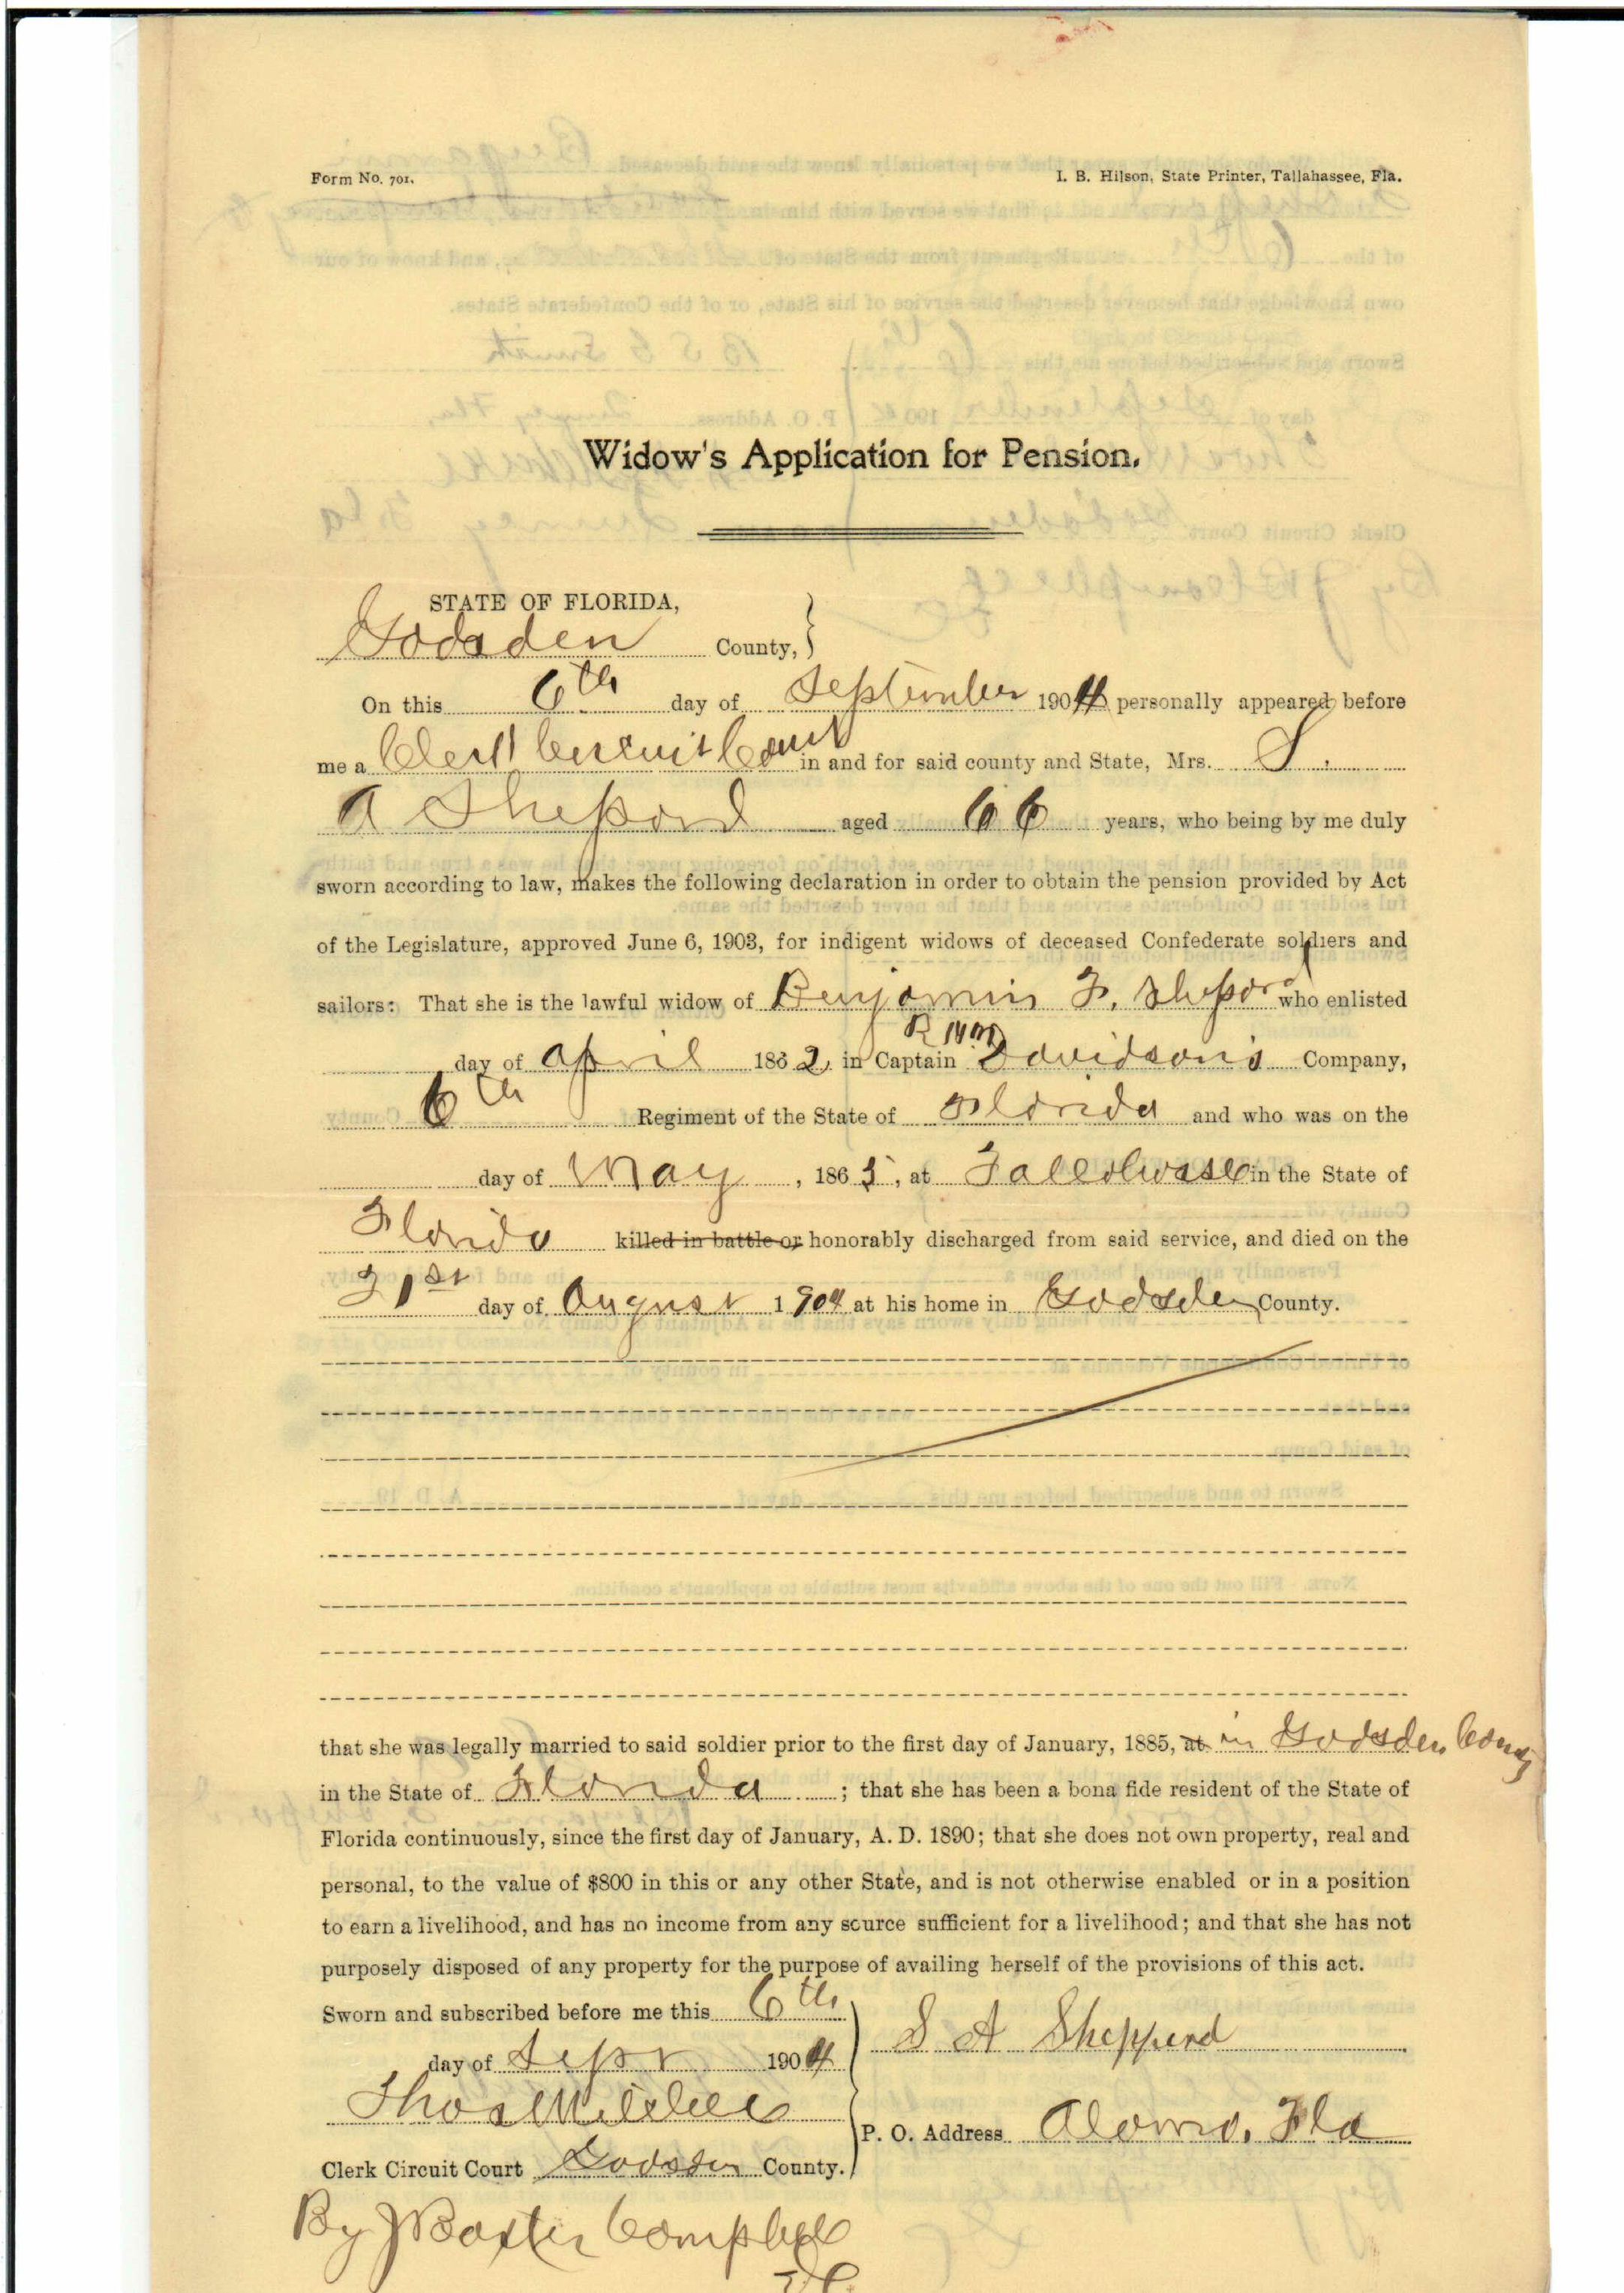 Form No. 701.
I. B. Hilson, State Printer, Tallahassee, Fla.
Widow's Application for Pension.
STATE OF FLORIDA,
Gadsden County,
On this 6th day of September 1904 personally appeared before
me a Clerk Circuit Court in and for said county and State, Mrs. S.
A Shepard aged 66 years, who being by me duly
sworn according to law, makes the following declaration in order to obtain the pension provided by Act
of the Legislature, approved June 6, 1903, for indigent widows of deceased Confederate soldiers and
sailors: That she is the lawful widow of Benjamin F. Shepard who enlisted
day of April 1862 in Captain R H M Davidson's Company,
6th Regiment of the State of Florida and who was on the
day of May, 1865, at Tallahasse in the State of
Florida killed in battle or honorably discharged from said service, and died on the
31st day of August 1904 at his home in Gadsden County.
that she was legally married to said soldier prior to the first day of January, 1885, at in Gadsden County
in the State of Florida; that she has been a bona fide resident of the State of
Florida continuously, since the first day of January, A. D. 1890; that she does not own property, real and
personal, to the value of $800 in this or any other State, and is not otherwise enabled or in a position
to earn a livelihood, and has no income from any source sufficient for a livelihood; and that she has not
purposely disposed of any property for the purpose of availing herself of the provisions of this act.
Sworn and subscribed before me this 6th
day of Sept 1904
S A Shepperd
Thos
P. O. Address Alamo, Fla
Clerk Circuit Court Gadsden County.
By J Baxter Campbell
DC